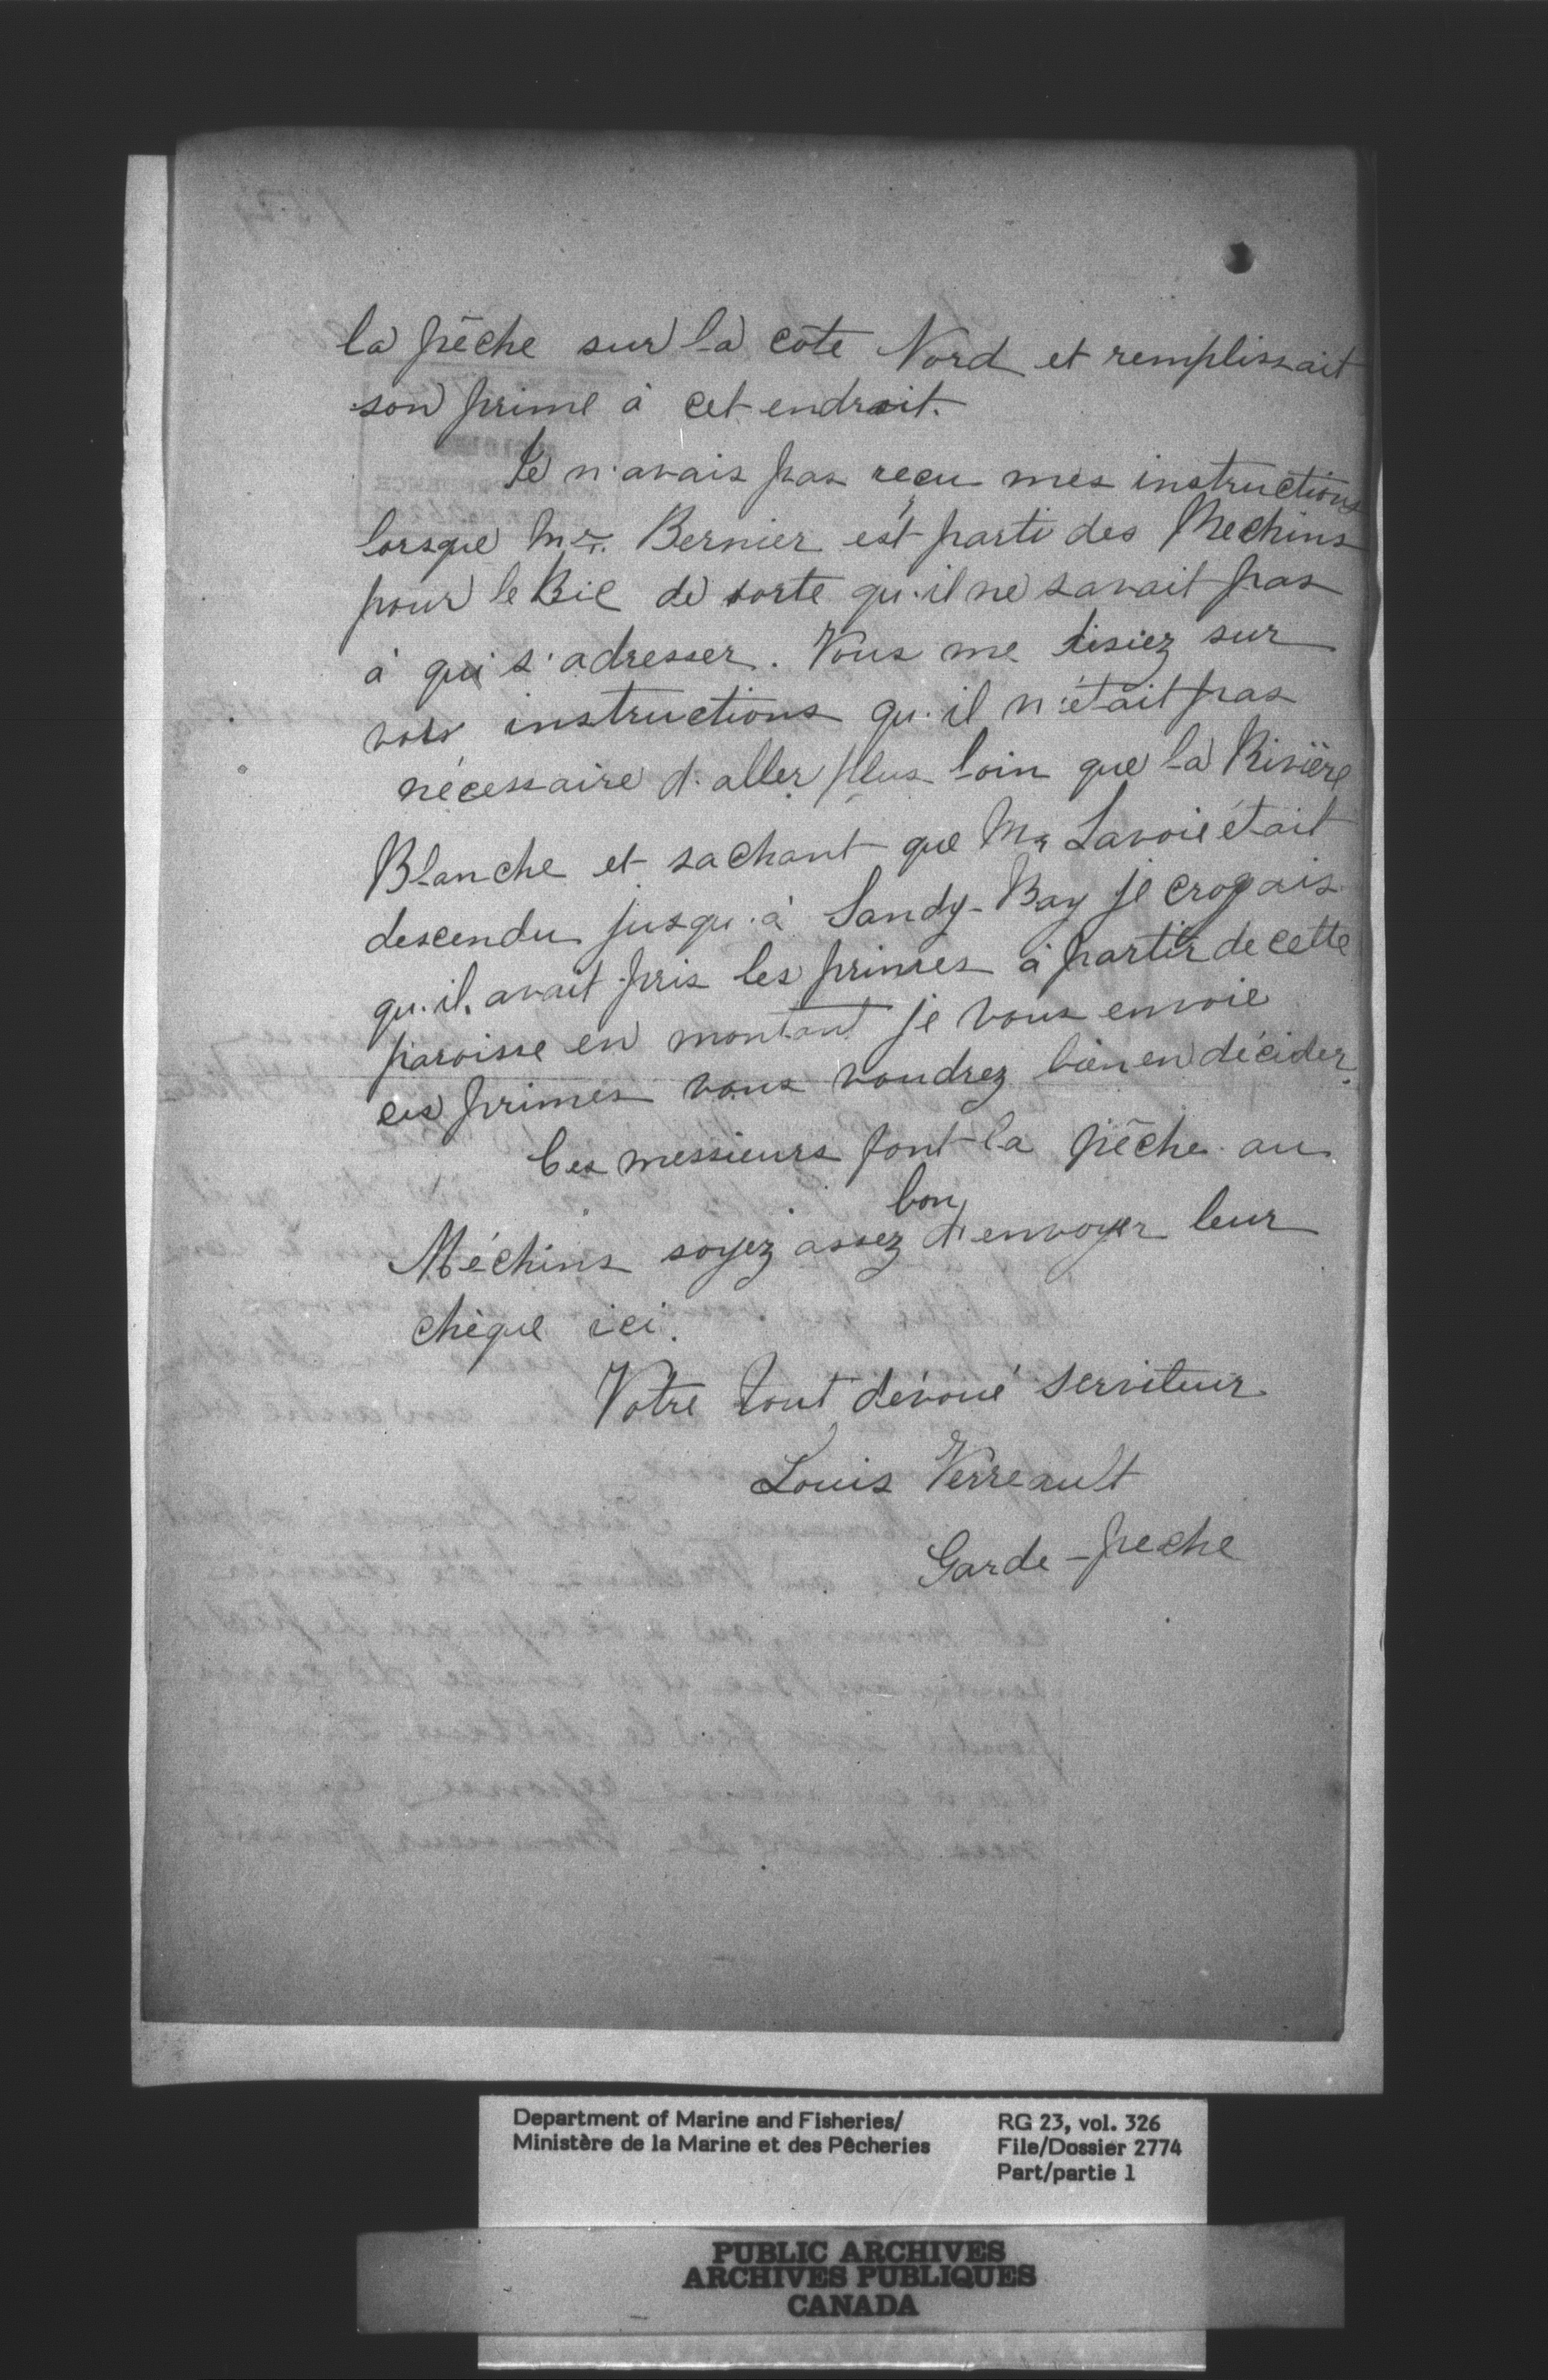 la pêche sur la côte Nord et remplissait
son prime à cet endroit.
Je n'avais pas reçu mes instructions
lorsque Mr. Bernier est parti des Mechins
pour le Bic de sorte qu'il ne savait pas
à qui s'adresser. Vous me disiez sur
vos instructions qu'il n'était pas
nécessaire d'aller plus loin que la Rivière
Blanche et sachant que Mr Lavoie était
descendu jusqu'à Sandy-Bay je croyais
qu'il avait pris les primes à partir de cette
paroisse en montant je vous envoie
ces primes vous voudrez bien en décider.
Ces messieurs font la pêche au
Méchins soyez assez bon d'envoyer leur
chèque ici.
Votre tout dévoué serviteur
Louis Verreault
Garde-peche
Department of Marine and Fisheries/
Ministère de la Marine et des Pêcheries
RG 23, vol. 326
File/Dossier 2774
Part/partie 1
PUBLIC ARCHIVES
ARCHIVES PUBLIQUES
CANADA